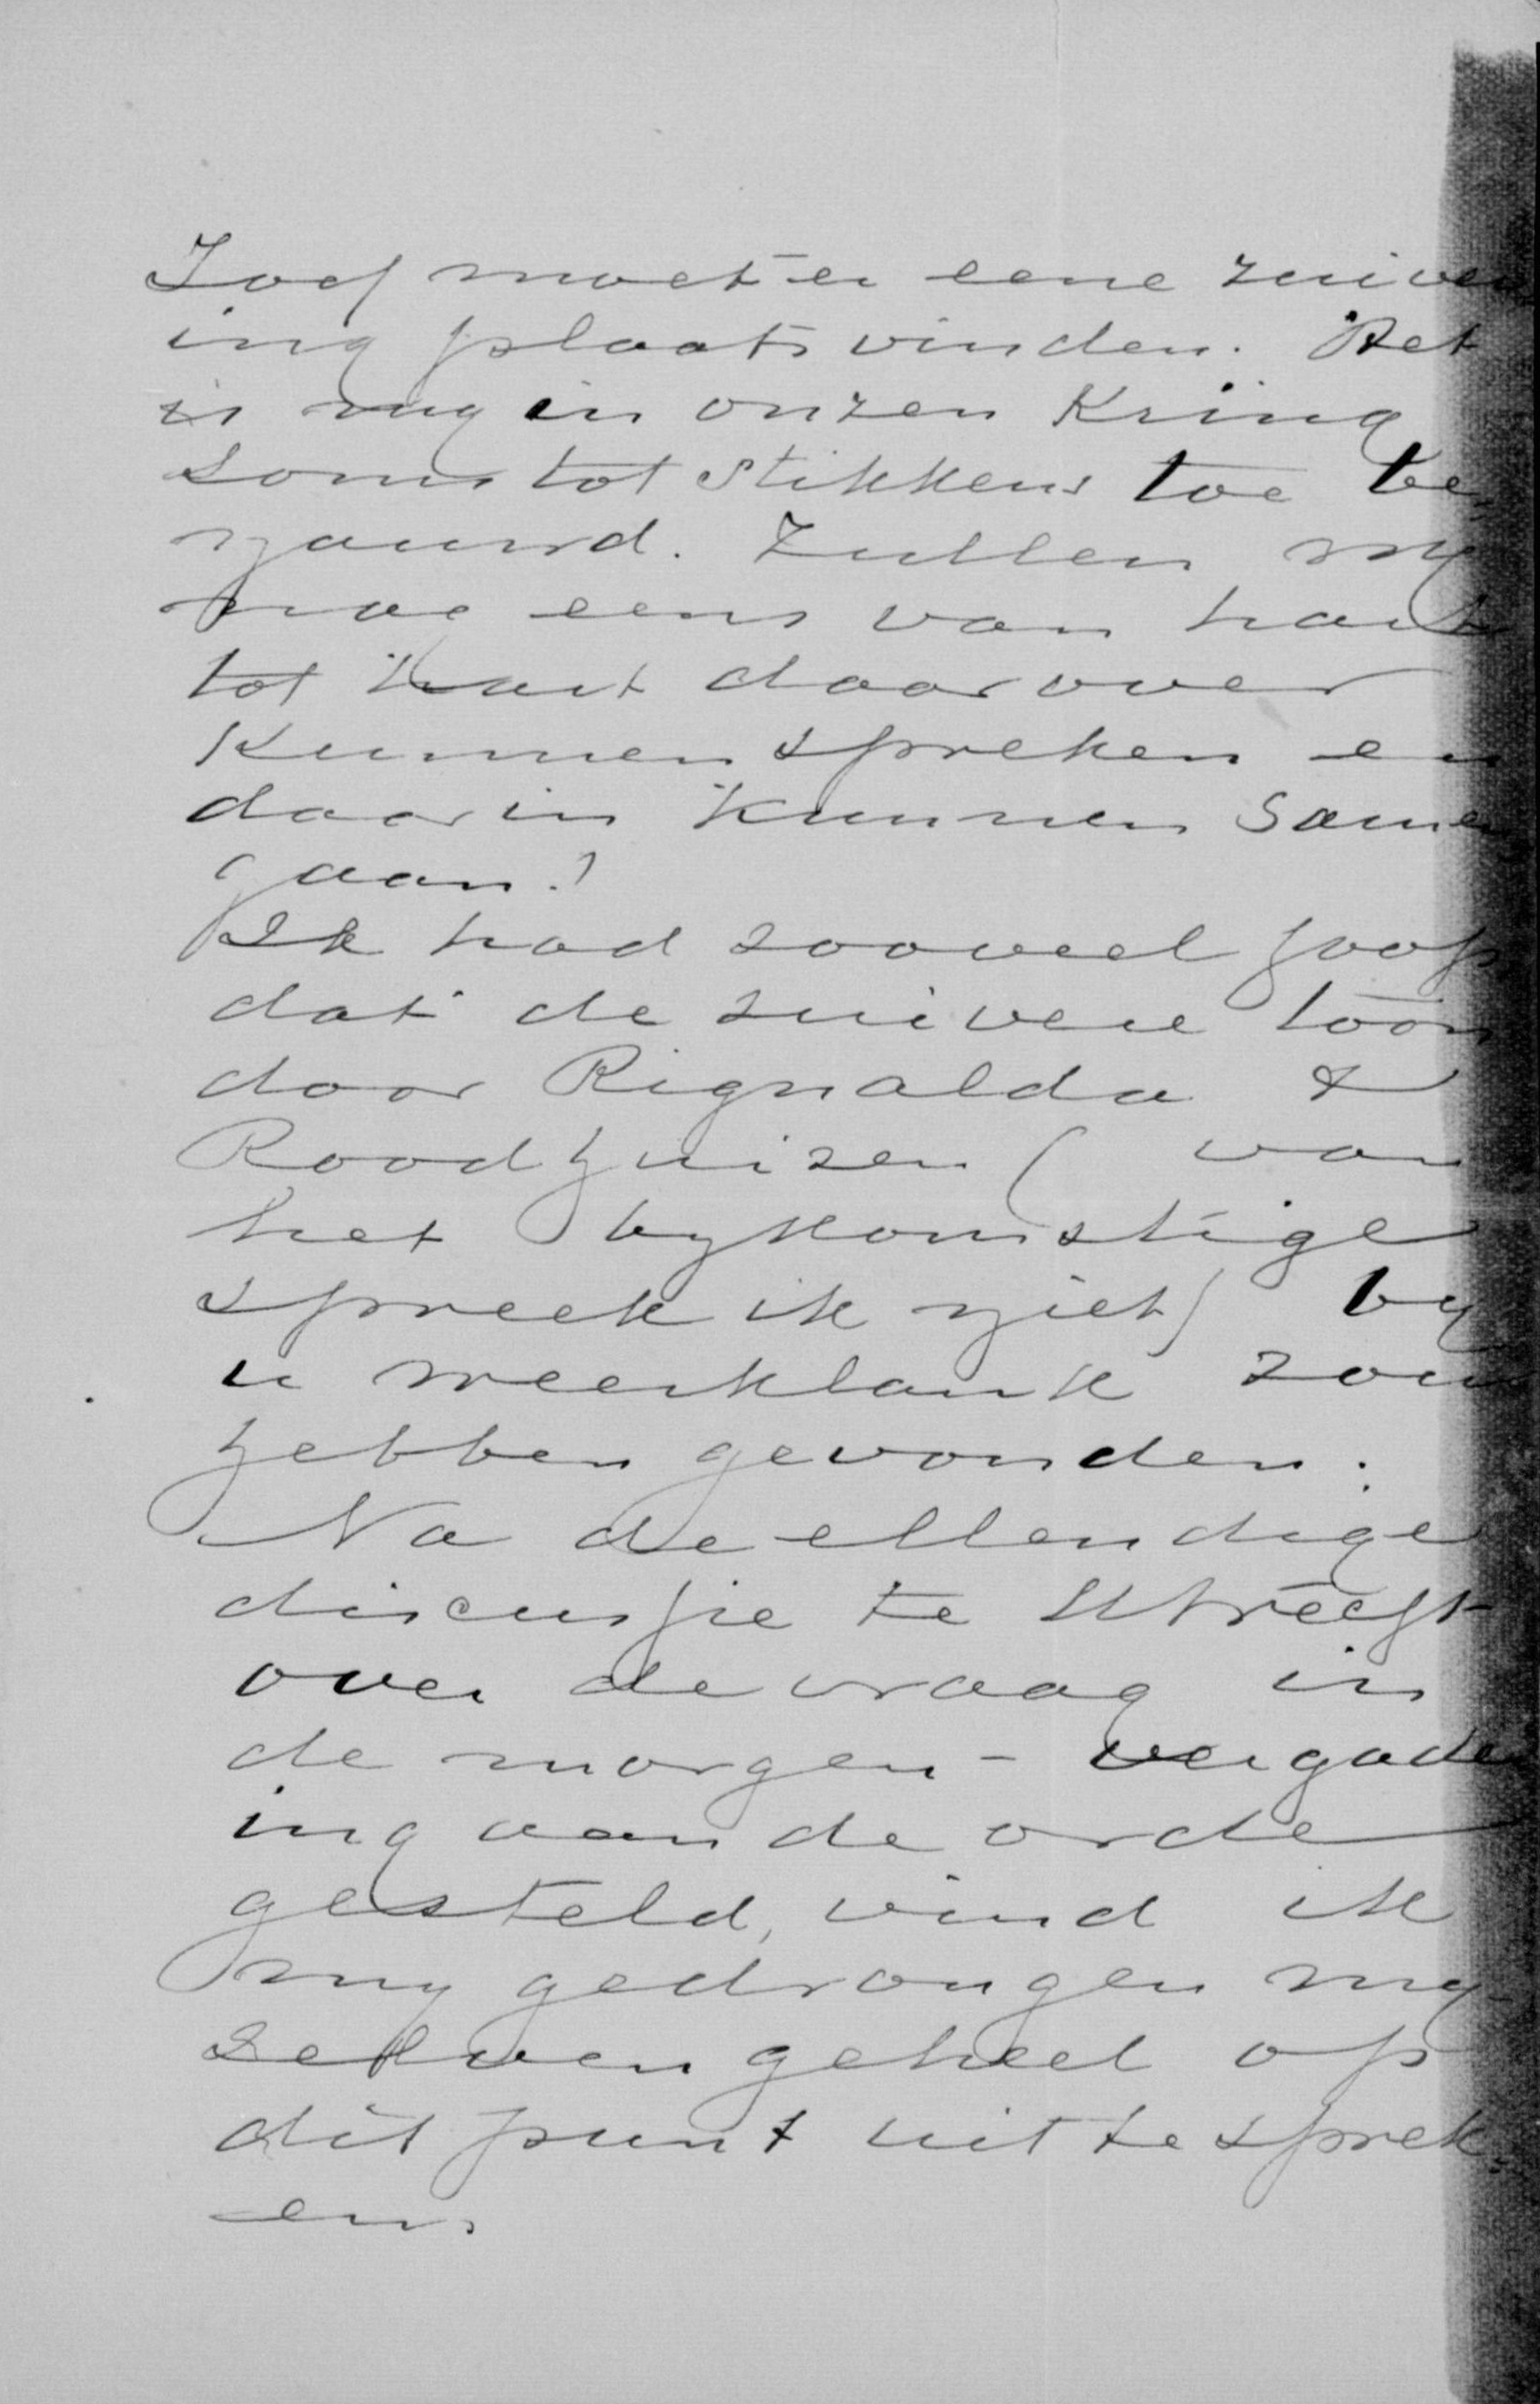 Toch moet er eene zuiver
ing plaats vinden. Het
is my in onzen Kring
soms tot stikkens toe be,
naauwd. Zullen wy
nog eens van hart
tot hart daarover
kunnen spreken en
daarin kunnen samen
gaan?
Ik had zooveel hoop
dat de zuivere toon
door Rignalda &
Roodhuizen (van
het bykomstige
spreek ik niet) by
u weerklank zou
hebben gevonden.
Na de ellendige
discussie te Utrecht
over de vraag in
de morgen - vergader
ing aan de orde
gesteld, vind ik
my gedrongen my-
zelven geheel op
dit punt uit te sprek,
en.